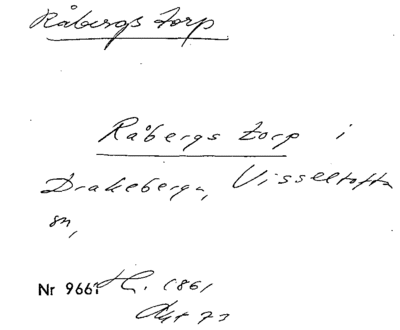 Råbergs torp
Råbergs torp i
Drakeberga, Visseltofta
sn,
Nr 9661 H. 1861
Akt 73